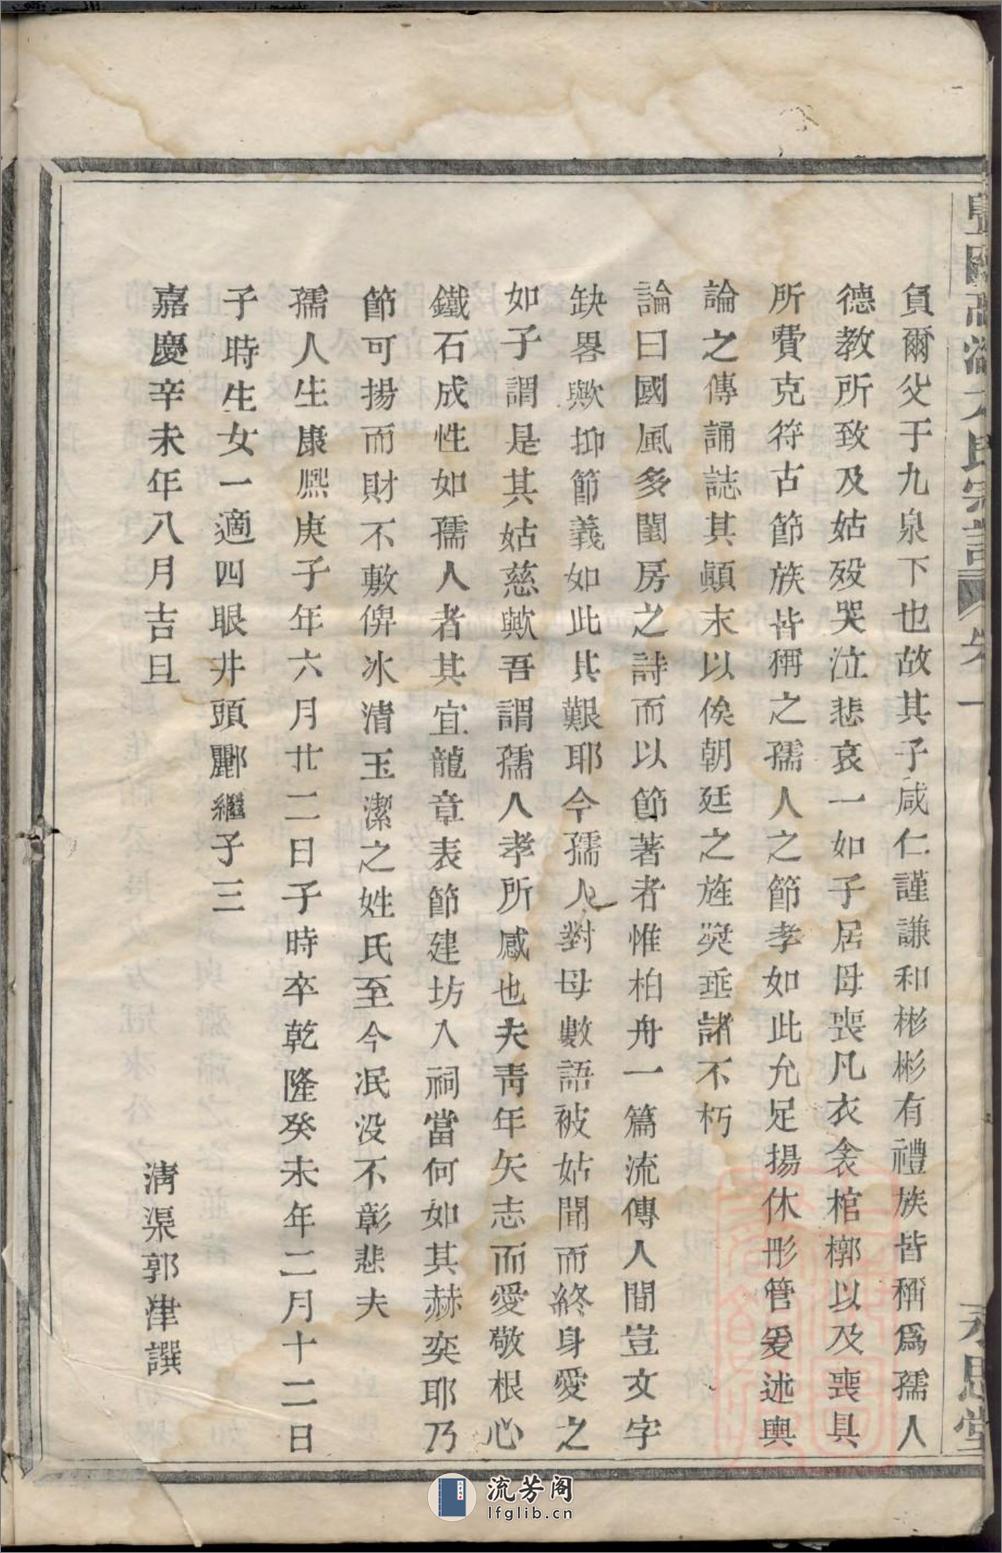 負爾父于九泉下也故其子咸仁謹謙和彬彬有禮族皆稱爲孺人
德教所致及姑歿哭泣悲哀一如子居母喪凡衣衾棺槨以及喪具
所費克符古節族皆稱之孺人之節孝如此允足揚休彤管爰述輿
論之傳誦誌其顚末以俟朝廷之旌奬垂諸不朽
論曰國風多閨房之詩而以節著者惟柏舟一篇流傳人間豈文字
缺畧歟抑節義如此其艱耶今孺人對母數語被姑聞而終身愛之
如子謂是其姑慈歟吾謂孺人孝所感也夫靑年矢志而愛敬根心
鐵石成性如孺人者其宜龍章表節建坊入祠當何如其赫奕耶乃
節可揚而財不敷俾冰清玉潔之姓氏至今泯没不彰悲夫
孺人生康熙庚子年六月廿二日子時卒乾隆癸未年二月十二日
子時生女一適四眼井頭酈繼子三
嘉慶辛未年八月吉旦
清渠郭津譔
宗譜
卷一
永思堂
流芳阁
lfglib.cn